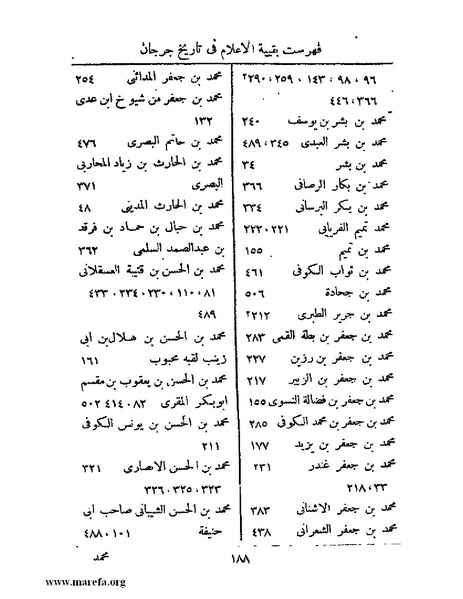 فهرست بقية الاعلام فى تاريخ جرجان
٩٦ ، ٩٨ ، ١٤٣ ، ٢٥٩ ، ٢٩٠٢
٣٦٦ ، ٤٤٦
محمد بن بشر بن يوسف ٢٤٠
محمد بن بشر العبدى ٣٤٥ ، ٤٨٩
محمد بن بشر ٣٤
محمد بن بكار الرصافى ٣٦٦
محمد بن بكر البرسانى ٣٣٤
محمد تميم الفريابى ٢٢١ ، ٢٢٢
محمد بن تميم ١٥٥
محمد بن ثواب الكوفى ٤٦١
محمد بن جحادة ٥٠٦
محمد بن جرير الطبرى ٢١٢٢
محمد بن جعفر بن بطة القمى ٢٨٣
محمد بن جعفر بن رزين ٢٢٧
محمد بن جعفر بن الزبير ٢١٧
محمد بن جعفر بن فضالة النسوى ١٥٥
محمد بن جعفر بن محمد الكوفى ٢٨٥
محمد بن جعفر بن يزيد ١٧٧
محمد بن جعفر غندر ٢٣١
٣٣ ، ٢١٨
محمد بن جعفر الاشنانى ٣٨٣
محمد بن جعفر الشعرانى ٤٣٨
محمد بن جعفر المدائنى ٢٥٤
محمد بن جعفر من شيوخ ابن عدى
١٣٢
محمد بن حاتم البصرى ٤٧٦
محمد بن الحارث بن زياد المحاربى
البصرى ٣٧١
محمد بن الحارث المدينى ٤٨
محمد بن حبال بن حماد بن فرقد
بن عبدالصمد السلمى ٣٦٢
محمد بن الحسن بن قتيبة العسقلانى
٨١ ، ١١٠ ، ٢٣٠ ، ٢٣٤ ، ٤٣٣
٤٨٩
محمد بن الحسن بن هلال بن ابى
زينب لقبه محبوب ١٦١
محمد بن الحسن بن يعقوب بن مقسم
ابوبكر المقرى ٨٢ ، ٤١٤ ، ٥٠٢
محمد بن الحسن بن يونس الكوفى
٢١١
محمد بن الحسن الانصارى ٣٢١
٣٢٣ ، ٣٢٥ ، ٣٢٦
محمد بن الحسن الشيبانى صاحب ابى
حنيفة ١٠١ ، ٤٨٨
محمد
١٨٨
www.marefa.org